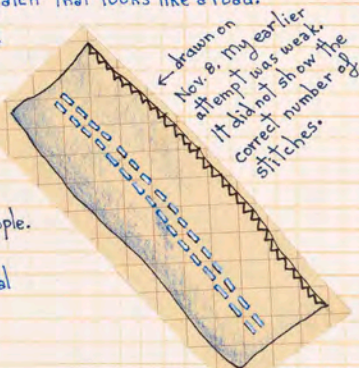 that looks like a road.
← drawn on
Nov. 8. My earlier
attempt was weak.
It did not show the
correct number of
stitches.